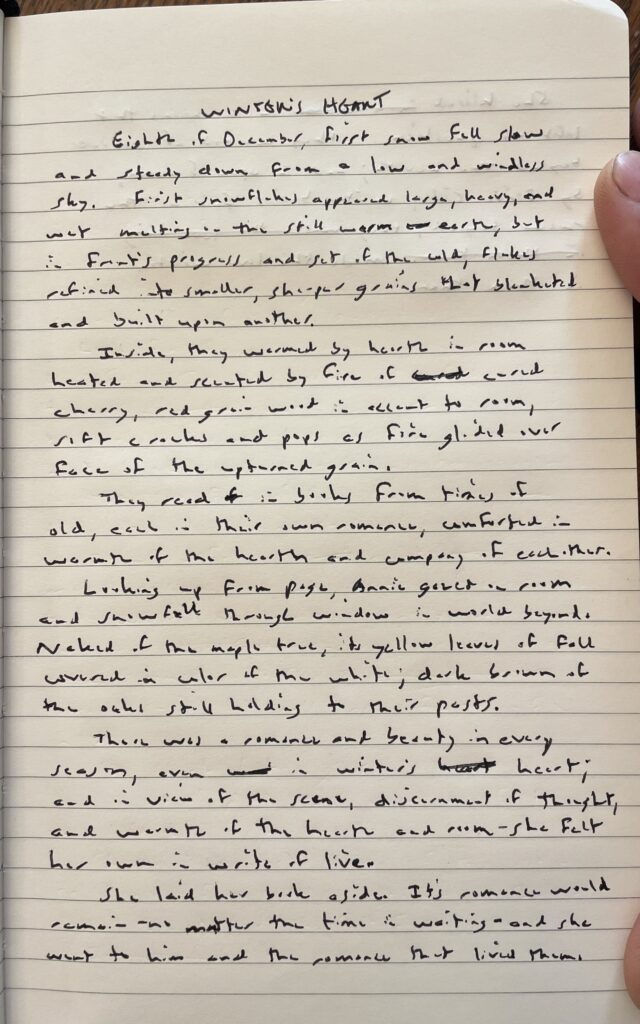 WINTER'S HEART
Eighth of December, first snow fell slow
and steady down from a low and windless
sky. First snowflakes appeared large, heavy, and
wet melting on the still warm earth, but
in front's progress and set of the cold, flakes
refined into smaller, sharper grains that blanketed
and built upon another.
Inside, they warmed by hearth in room
heated and scented by fire of cured
cherry, red grain wood in accent to room,
soft cracks and pops as fire glided over
face of the upturned grain.
They read in books from times of
old, each in their own romance, comforted in
warmth of the hearth and company of each other.
Looking up from page, Annie gazed on room
and snowfall through window in world beyond.
Naked of the maple tree, its yellow leaves of fall
covered in color of the white; dark brown of
the oaks still holding to their posts.
There was a romance and beauty in every
season, even in winter's heart;
and in view of the scene, discernment of thought,
and warmth of the hearth and room - she felt
her own in write of live.
She laid her book aside. It's romance would
remain - no matter the time in waiting - and she
went to him and the romance that lived them.